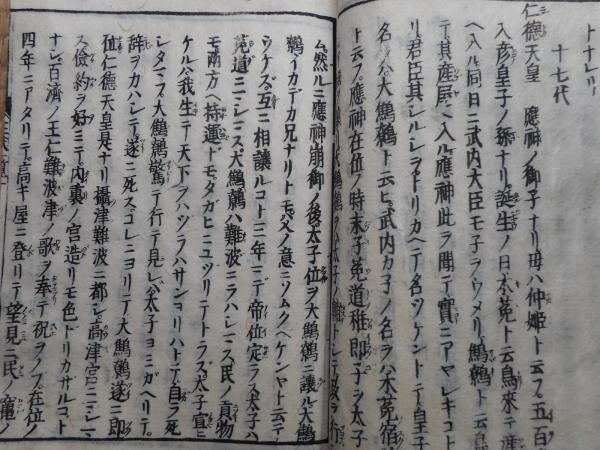 トナレリ
十七代
仁徳天皇 應神ノ御子ナリ母ハ仲姫ト云フ五百
入彦皇子ノ孫ナリ誕生ノ日木菟ト云鳥來テ産
へ入ル同日ニ武内大臣モ子ヲウメリ鷦鷯ト云鳥
テ其産屋ニ入ル應神此ヲ聞テ實ニアヤシキコト
リ君臣其シルシヲトリカヘテ名ツケントテ皇子
名ヲハ大鷦鷯ト云ヒ武内カ子ノ名ヲハ木菟宿
ト云フ應神在位ノ時末子菟道稚郎子ヲ太子
ム然ルニ應神崩御ノ後太子位ヲ大鷦鷯ニ讓ル大鷦
鷯イカデカ兄ナリトモ父ノ意ニソムクヘケンヤト云テ
ウケズ互ニ相讓ルコト三年ニテ帝位定ラス太子ハ
菟道ニマシマス大鷦鷯ハ難波ニヲハシマス民ノ貢物
モ両方ヘ持運トモタガヒニユツリテトラズ太子宣ヒ
ケルハ我生テ天下ヲハツラハサンヨリハトテ自ラ死
シタマフ大鷦鷯驚テ行テ見レバ太子ヨミガヘリテ
辞ヲカハシテ遂ニ死スコレニヨリテ大鷦鷯遂ニ即
位仁徳天皇是ナリ攝津難波ニ都シ高津宮ニマシマ
ス儉約ヲ好ミテ内裏ノ宮造リモ色ドリカザルコト
ナシ百濟ノ王仁難波津ノ歌ヲ奉テ祝ヲノブ在位ノ
四年ニアタリテ高キ屋ニ登リテ望見ニ民ノ竃ノ